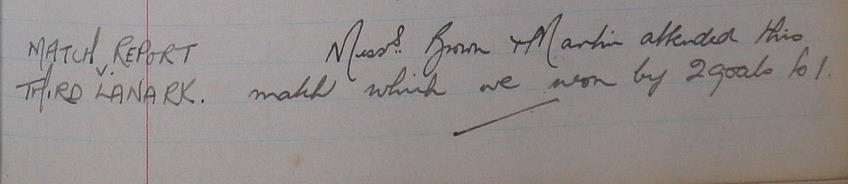 MATCH REPORT Messrs. Brown & Martin attended this
v.
THIRD LANARK. match which we won by 2 goals to 1.